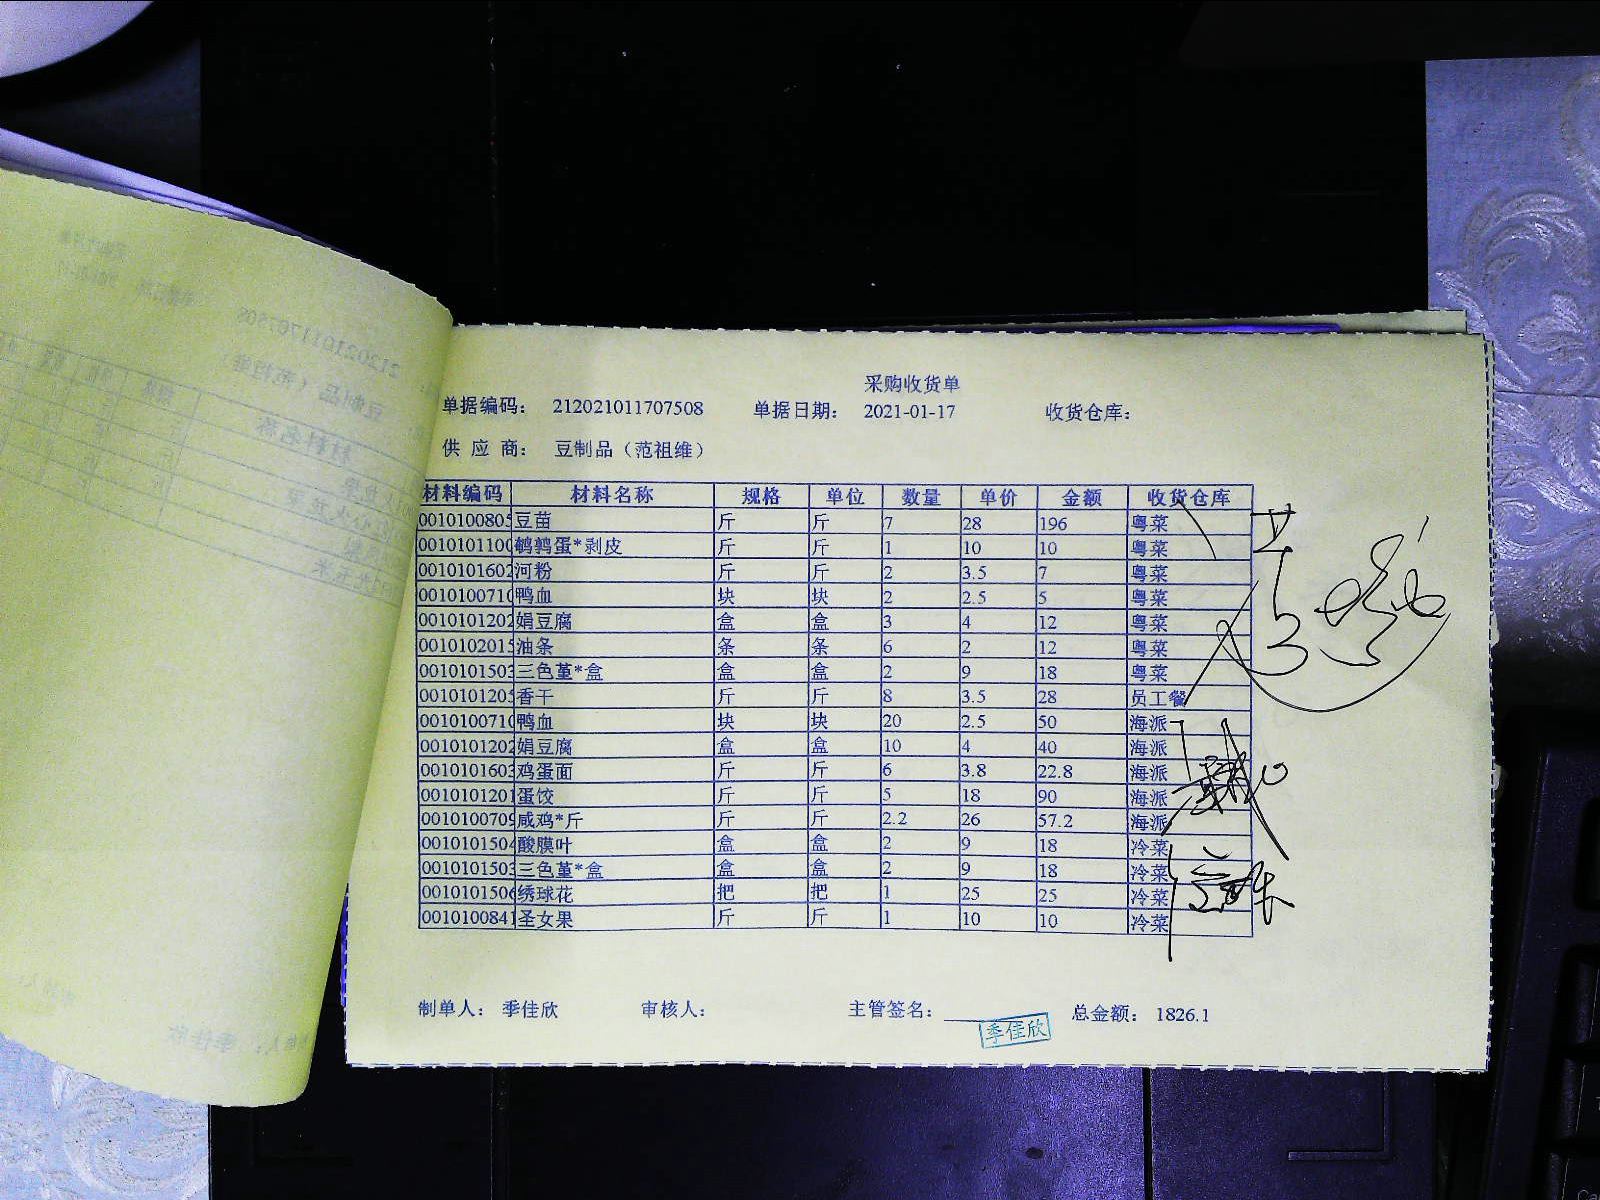 采购收货单
单据编码： 212021011707508 单据日期： 2021-01-17 收货仓库：
供 应 商： 豆制品（范祖维）
材料编码 材料名称 规格 单位 数量 单价 金额 收货仓库
0010100805 豆苗 斤 斤 7 28 196 粤菜
0010101100 鹌鹑蛋*剥皮 斤 斤 1 10 10 粤菜
0010101602 河粉 斤 斤 2 3.5 7 粤菜
0010100710 鸭血 块 块 2 2.5 5 粤菜
0010101202 娟豆腐 盒 盒 3 4 12 粤菜
0010102015 油条 条 条 6 2 12 粤菜
0010101503 三色堇*盒 盒 盒 2 9 18 粤菜
0010101205 香干 斤 斤 8 3.5 28 员工餐
0010100710 鸭血 块 块 20 2.5 50 海派
0010101202 娟豆腐 盒 盒 10 4 40 海派
0010101603 鸡蛋面 斤 斤 6 3.8 22.8 海派
0010101201 蛋饺 斤 斤 5 18 90 海派
0010100709 咸鸡*斤 斤 斤 2.2 26 57.2 海派
0010101504 酸膜叶 盒 盒 2 9 18 冷菜
0010101503 三色堇*盒 盒 盒 2 9 18 冷菜
0010101506 绣球花 把 把 1 25 25 冷菜
0010100841 圣女果 斤 斤 1 10 10 冷菜
制单人： 季佳欣 审核人： 主管签名： 季佳欣 总金额： 1826.1